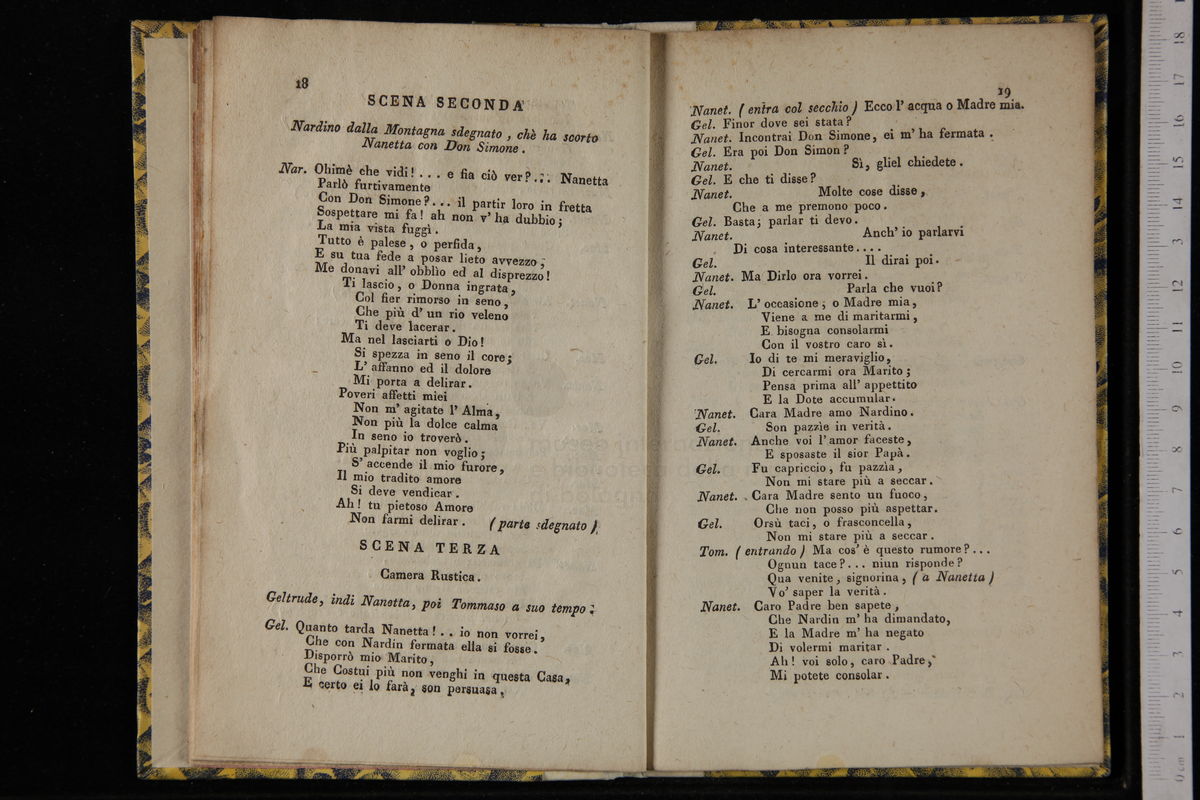 18
SCENA SECONDA
Nardino dalla Montagna sdegnato, chè ha scorto
Nanetta con Don Simone.
Nar. Ohimè che vidi! ... e fia ciò ver?... Nanetta
Parlò furtivamente
Con Don Simone?... il partir loro in fretta
Sospettare mi fa! ah non v' ha dubbio;
La mia vista fuggì.
Tutto è palese, o perfida,
E su tua fede a posar lieto avvezzo,
Me donavi all' obblìo ed al disprezzo!
Ti lascio, o Donna ingrata,
Col fier rimorso in seno,
Che più d' un rio veleno
Ti deve lacerar.
Ma nel lasciarti o Dio!
Si spezza in seno il core;
L' affanno ed il dolore
Mi porta a delirar.
Poveri affetti miei
Non m' agitate l' Alma,
Non più la dolce calma
In seno io troverò.
Più palpitar non voglio;
S' accende il mio furore,
Il mio tradito amore
Si deve vendicar.
Ah! tu pietoso Amore
Non farmi delirar. (parte sdegnato)
SCENA TERZA
Camera Rustica.
Geltrude, indi Nanetta, poi Tommaso a suo tempo.
Gel. Quanto tarda Nanetta! .. io non vorrei,
Che con Nardin fermata ella si fosse.
Disporrò mio Marito,
Che Costui più non venghi in questa Casa,
E certo ei lo farà, son persuasa,
19
Nanet. (entra col secchio) Ecco l' acqua o Madre mia.
Gel. Finor dove sei stata?
Nanet. Incontrai Don Simone, ei m' ha fermata.
Gel. Era poi Don Simon?
Nanet. Sì, gliel chiedete.
Gel. E che ti disse?
Nanet. Molte cose disse,
Che a me premono poco.
Gel. Basta; parlar ti devo.
Nanet. Anch' io parlarvi
Di cosa interessante....
Gel. Il dirai poi.
Nanet. Ma Dirlo ora vorrei.
Gel. Parla che vuoi?
Nanet. L' occasione, o Madre mia,
Viene a me di maritarmi,
E bisogna consolarmi
Con il vostro caro sì.
Gel. Io di te mi meraviglio,
Di cercarmi ora Marito;
Pensa prima all' appettito
E la Dote accumular.
Nanet. Cara Madre amo Nardino.
Gel. Son pazzìe in verità.
Nanet. Anche voi l' amor faceste,
E sposaste il sior Papà.
Gel. Fu capriccio, fu pazzìa,
Non mi stare più a seccar.
Nanet. Cara Madre sento un fuoco,
Che non posso più aspettar.
Gel. Orsù taci, o frasconcella,
Non mi stare più a seccar.
Tom. (entrando) Ma cos' è questo rumore?...
Ognun tace?... niun risponde?
Qua venite, signorina, (a Nanetta)
Vo' saper la verità.
Nanet. Caro Padre ben sapete,
Che Nardin m' ha dimandato,
E la Madre m' ha negato
Di volermi maritar.
Ah! voi solo, caro Padre,
Mi potete consolar.